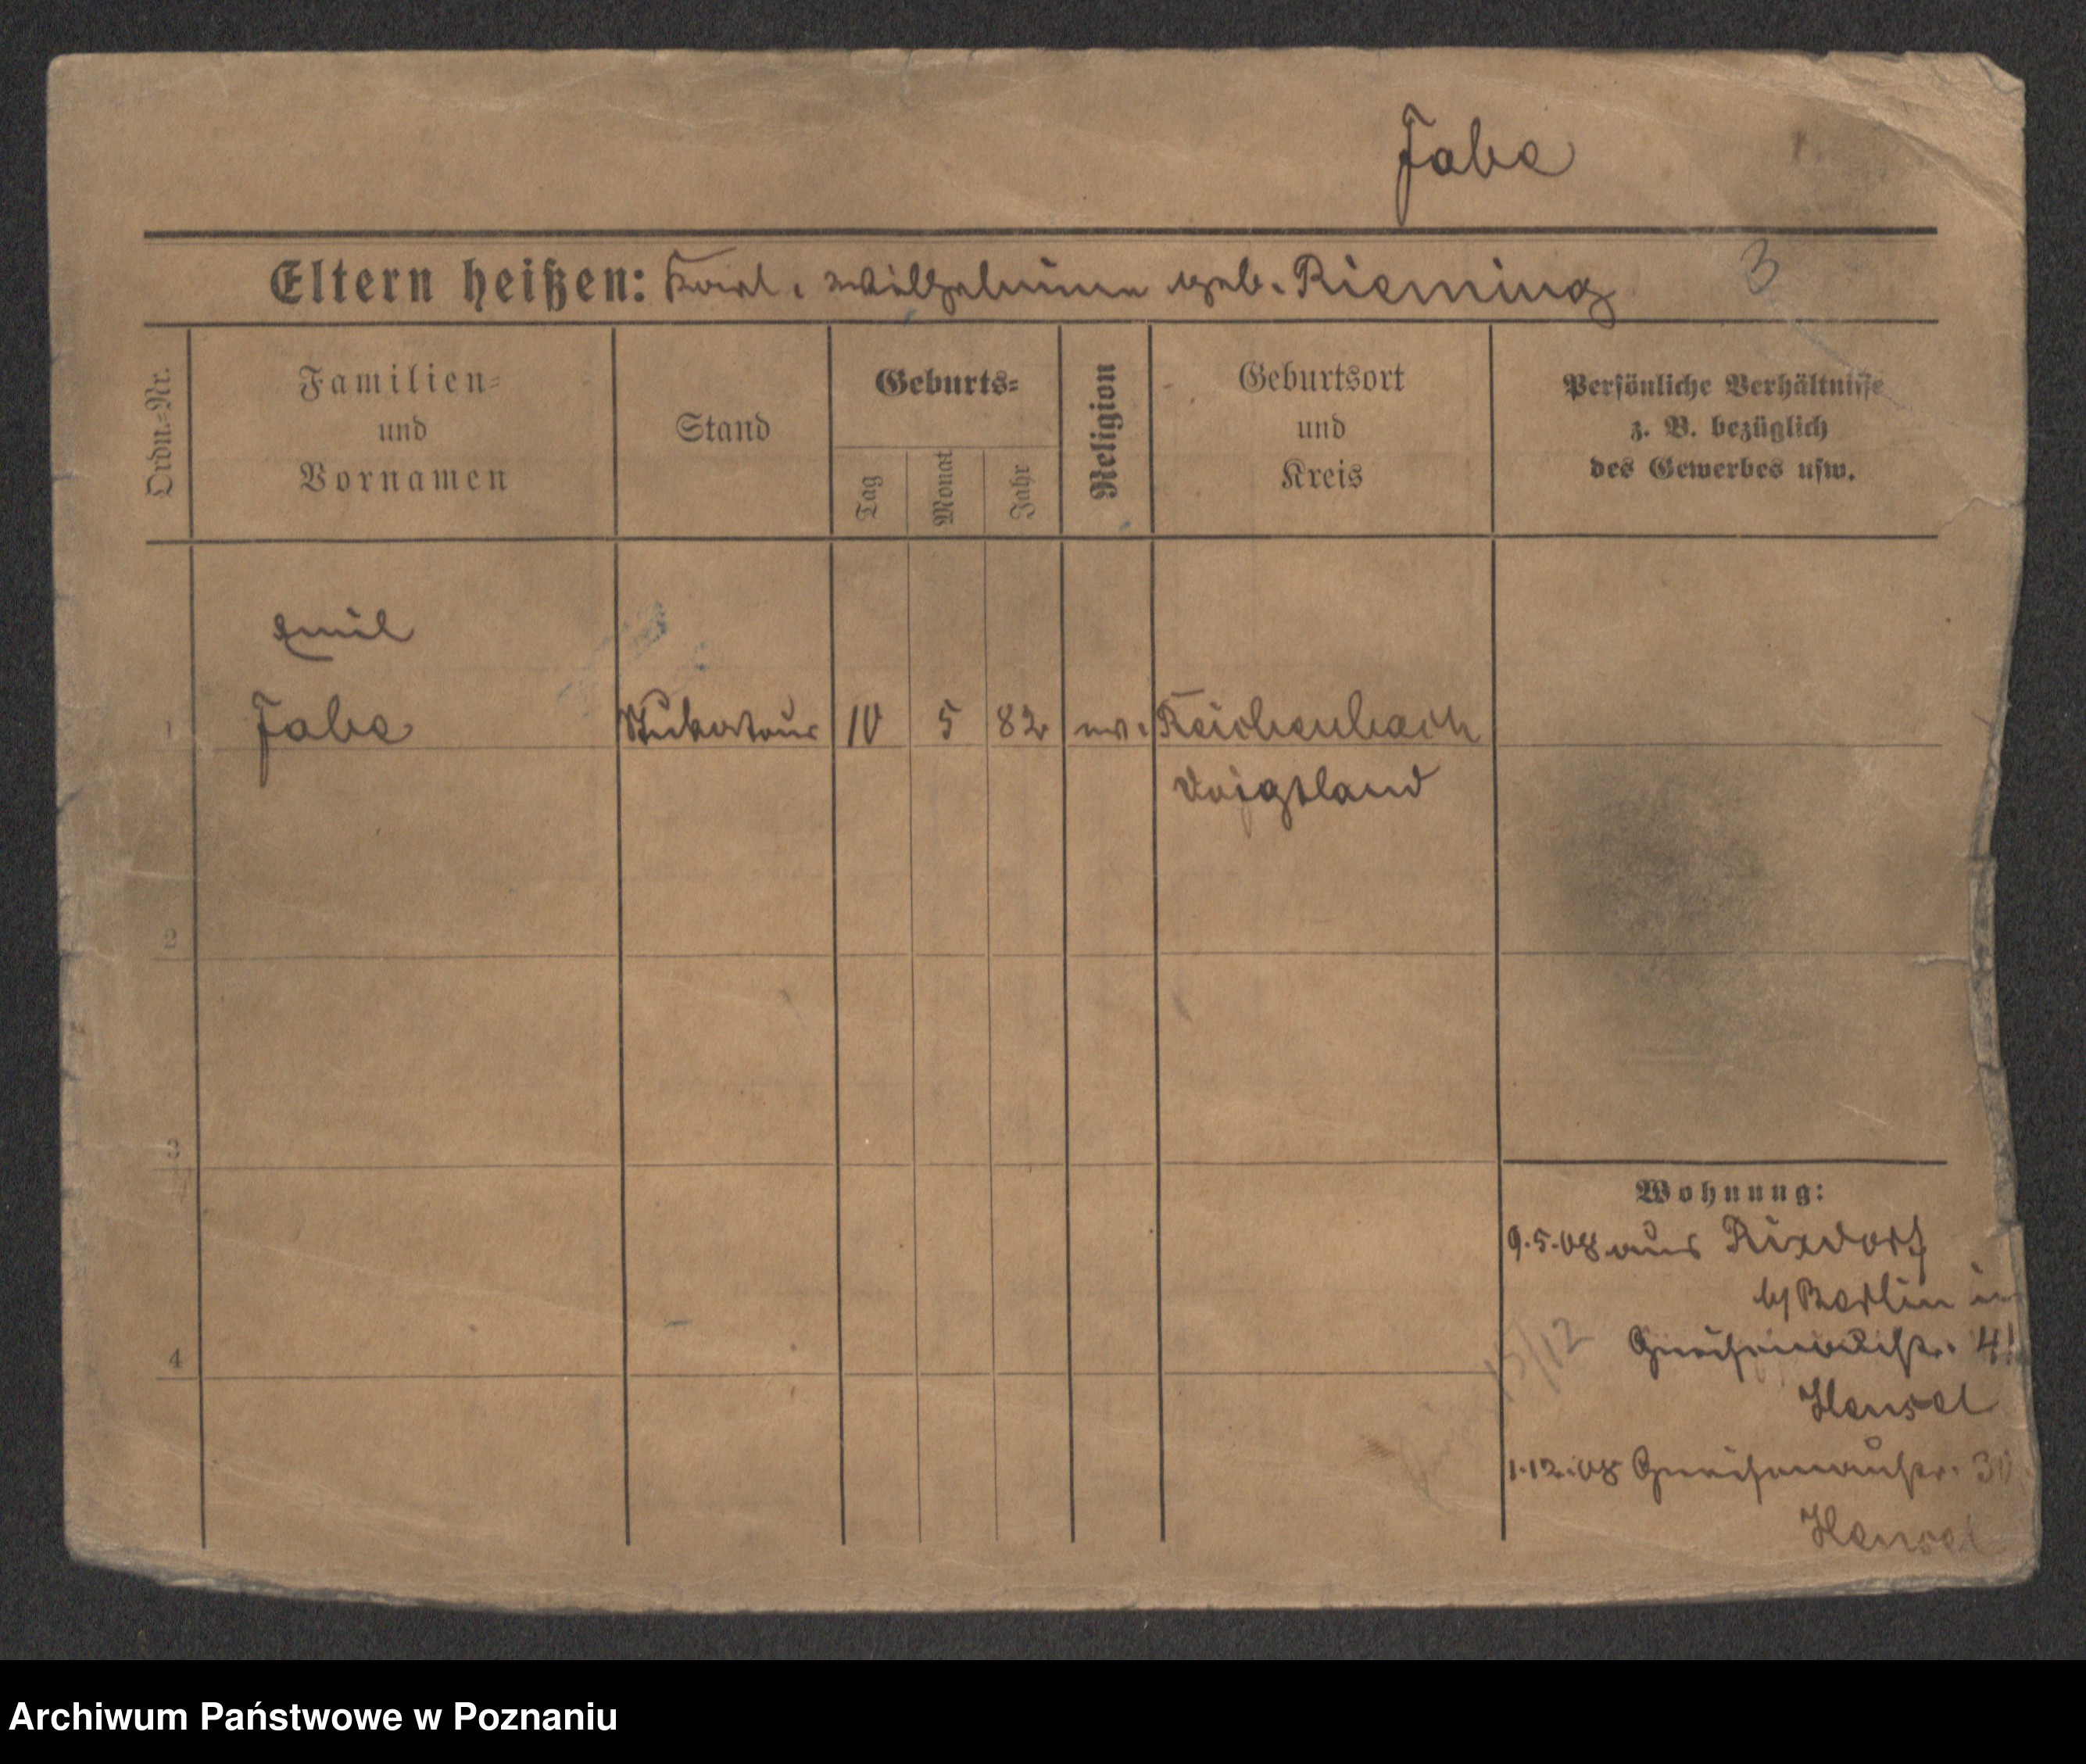 Jabe
Eltern heißen: Karl, Wilhelmine geb. Rieming 3
Ordn.=Nr.
Familien=
und
Vornamen
Stand
Geburts=
Tag
Monat
Jahr
Religion
Geburtsort
und
Kreis
Persönliche Verhältnisse
z. B. bezüglich
des Gewerbes usw.
Emil
1 Jabe Stukateur 10 5 82 ev. Reichenbach
Voigtland
2
3
4
Wohnung:
9.5.08 aus Rixdorf
b/Berlin in
Gneisenaustr. 4
Hensel
15/12
1.12.08 Gneisenaustr. 30
Hensel
Archiwum Państwowe w Poznaniu